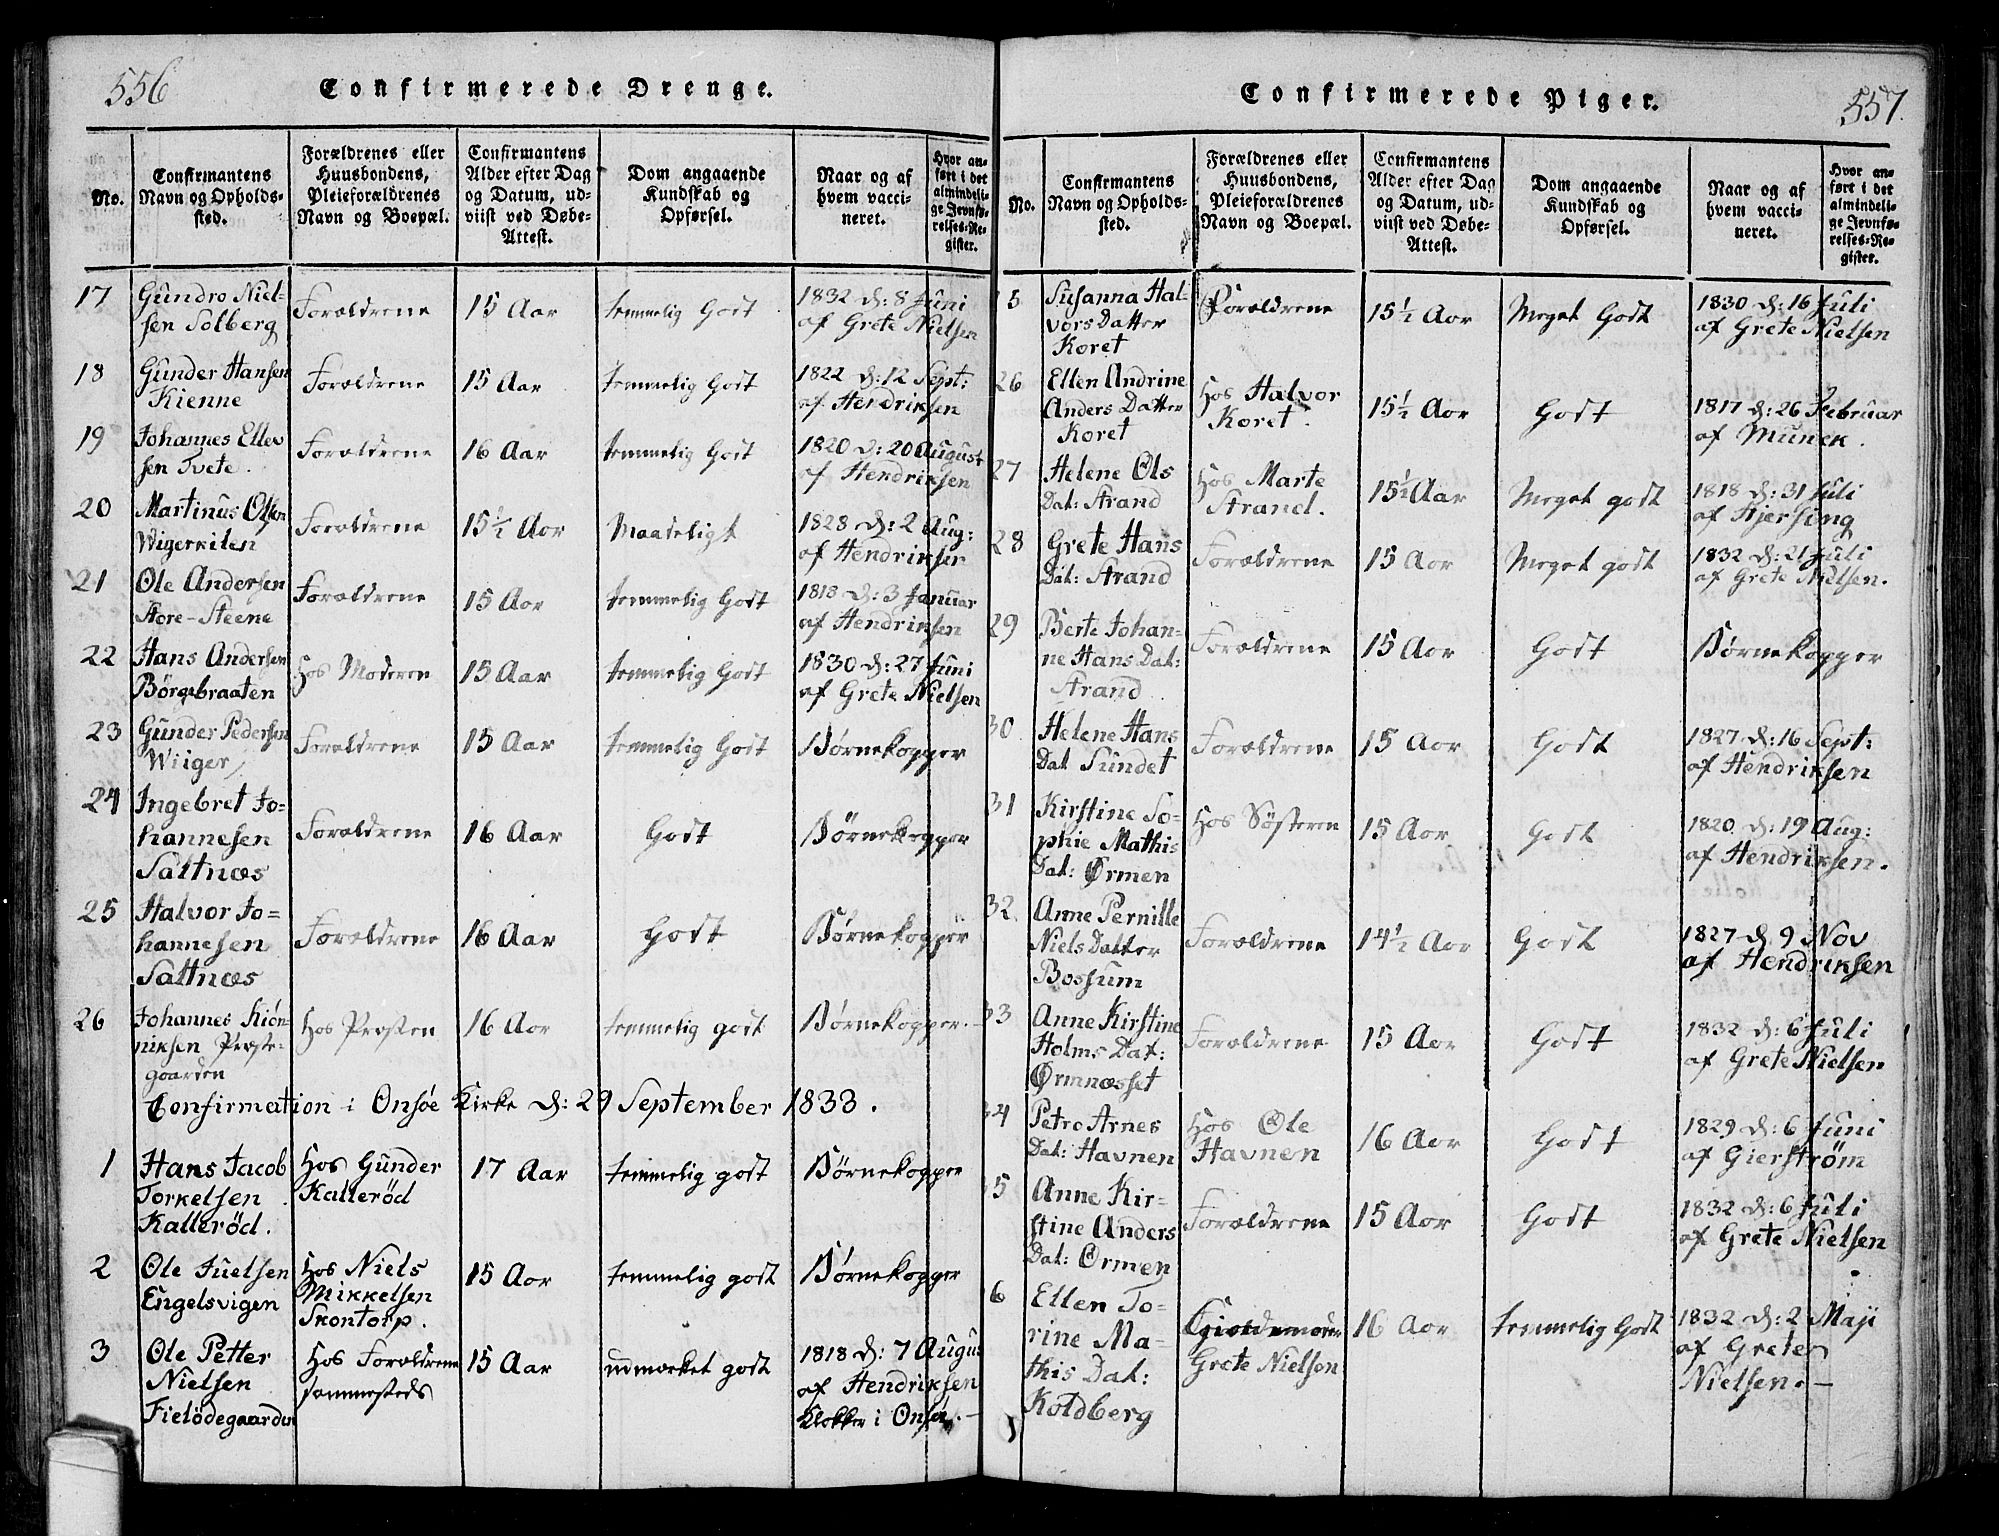 556
Confirmerede Drenge.
No.
Confirmantens
Navn og Opholds-
sted.
Forældrenes eller
Huusbondens,
Pleieforældrenes
Navn og Boepæl.
Confirmantens
Alder efter Dag
og Datum, ud-
viist ved Døbe-
Attest.
Dom angaaende
Kundskab og
Opførsel.
Naar og af
hvem vacci-
neret.
Hvor an-
ført i det
almindeli-
ge Jevnfø-
relses-Re-
gister.
17
Gundro Niel-
sen Solberg
Forældrene
15 Aar
temmelig Godt
1832 d: 8 Juni
af Grete Nielsen
18
Gunder Hansen
Kienne
Forældrene
15 Aar
temmelig Godt
1822 d: 12 Sept:
af Hendriksen
19
Johannes Ellev
sen Tvete.
Forældrene
16 Aar
temmelig Godt
1820 d: 20 August
af Hendriksen
20
Martinus Olsen
Wigerkilen
Forældrene
15½ Aar
Maadeligt
1828 d: 2 Aug:
af Hendriksen
21
Ole Andersen
Store-Steene
Forældrene
15 Aar
temmelig Godt
1818 d: 3 Januar
af Hendriksen
22
Hans Andersen
Börgebraaten
Hos Moderen
15 Aar
temmelig Godt
1830 d: 27 Juni
af Grete Nielsen
23
Gunder Pedersen
Wiiger
Forældrene
15 Aar
temmelig Godt
Børnekopper
24
Ingebret Jo-
hannesen
Saltnæs
Forældrene
16 Aar
Godt
Børnekopper
25
Halvor Jo-
hannesen
Saltnæs
Forældrene
16 Aar
Godt
Børnekopper
26
Johannes Kiön-
niksen Præste-
gaarden
Hos Præsten
16 Aar
temmelig godt
Børnekopper.
Confirmation i Onsöe Kirke d: 29 September 1833.
1
Hans Jacob
Torkelsen
Kalleröd.
Hos Gunder
Kalleröd
17 Aar
temmelig godt
Børnekopper
2
Ole Juelsen
Engelsvigen
Hos Niels
Mikkelsen
Skontorp.
15 Aar
temmelig godt
Børnekopper
3
Ole Petter
Nielsen
Fielödegaarden
Hos Forældrene
sammesteds
15 Aar
udmærket godt
1818 d: 7 Augu
af Hendriksen
Klokker i Onsö.-
Confirmerede Piger.
557.
No.
Confirmantens
Navn og Opholds-
sted.
Forældrenes eller
Huusbondens,
Pleieforældrenes
Navn og Boepæl.
Confirmantens
Alder efter Dag
og Datum, ud-
viist ved Døbe-
Attest.
Dom angaaende
Kundskab og
Opførsel.
Naar og af
hvem vacci-
neret.
Hvor an-
ført i det
almindeli-
ge Jevnfø-
relses-Re-
gister.
5
Susanna Hal-
vors Datter
Koret
Forældrene
15½ Aar
Meget Godt
1830 d: 16 Juli
af Grete Nielsen
26
Ellen Andrine
Anders Datter
Koret
Hos Halvor
Koret.
15½ Aar
Godt
1817 d: 26 Februar
af Munck.
27
Helene Ols
Dat: Strand
Hos Marte
Strand.
15½ Aar
Meget godt
1818 d: 31 Juli
af Hjersing
28
Grete Hans
Dat: Strand
Forældrene
15 Aar
Meget godt
1832 d: 21 Juli
af Grete Nielsen.
29
Berte Johan-
ne Hans Dat:
Strand
Forældrene
15 Aar
Godt
Børnekopper
30
Helene Hans
Dat Sundet
Forældrene
15 Aar
Godt
1827 d: 16 Sept:
af Hendriksen
31
Kirstine So-
phie Mathis
Dat: Ørmen
Hos Søsteren
15 Aar
Godt
1820 d: 19 Aug:
af Hendriksen.
32
Anne Pernille
Niels Datter
Bossum
Forældrene
14½ Aar
Godt
1827 d 9 Nov
af Hendriksen
33
Anne Kirstine
Holms Dat:
Ørmnæsset
Forældrene
15 Aar
Godt
1832 d: 6 Juli
af Grete Nielsen
34
Petro Arnes
Dat: Havnen
Hos Ole
Havnen
16 Aar
Godt
1829 d: 6 Juni
af Gierström
5
Anne Kir-
stine Anders
Dat: Ørmen
Forældrene
15 Aar
Godt
1832 d: 6 Juli
af Grete Nielsen
6
Ellen To-
rine Ma-
this Dat:
Koldberg
Grete Nielsen
16 Aar
temmelig Godt
1832 d: 2 Maji
af Grete
Nielsen.-